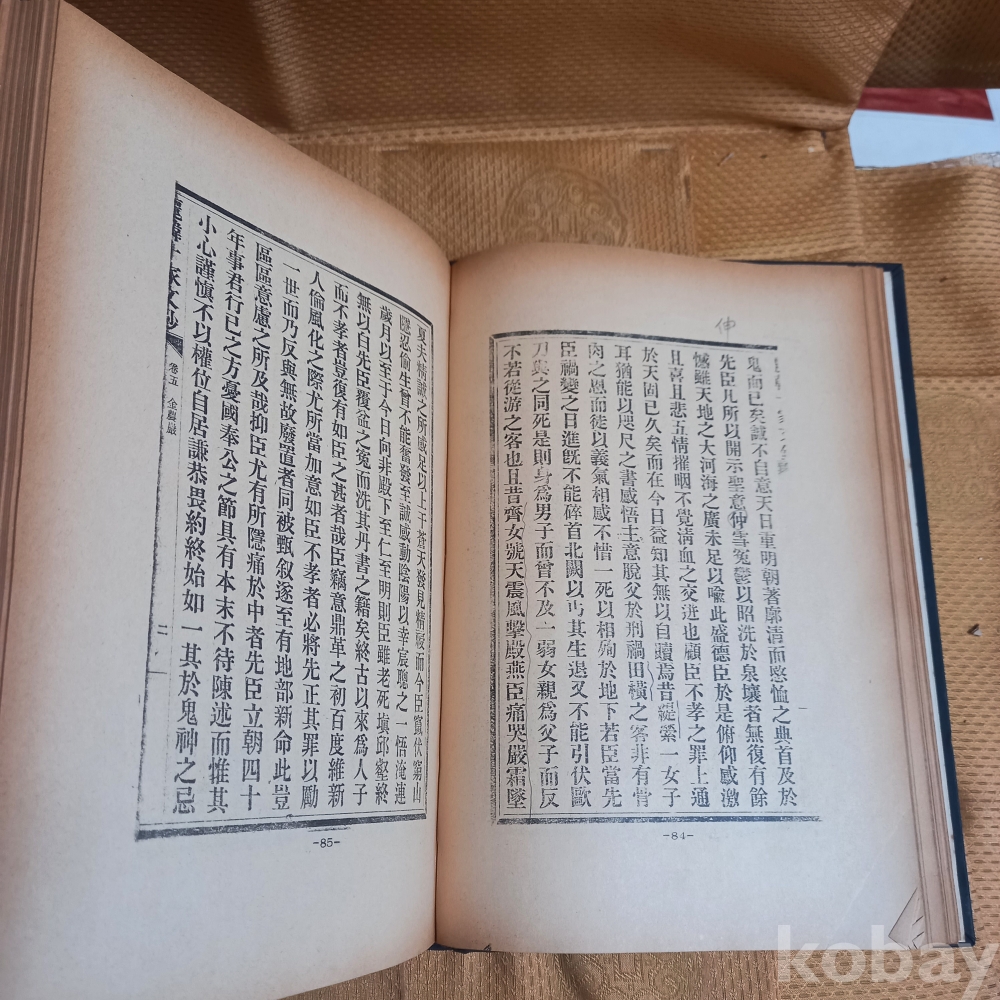 伸
鬼而已矣誠不自意天日重明朝著廓清而愍恤之典首及於
先臣凡所以開示聖意仲雪冤鬱以昭洗於泉壤者無復有餘
憾雖天地之大河海之廣未足以喩此盛德臣於是俯仰感激
且喜且悲五情摧咽不覺淸血之交迸也顧臣不孝之罪上通
於天固已久矣而在今日益知其無以自贖焉昔緹縈一女子
耳猶能以咫尺之書感悟主意脫父於刑禍田橫之客非有骨
肉之恩而徒以義氣相感不惜一死以相殉於地下若臣當先
臣禍變之日進旣不能碎首北闕以丐其生退又不能引伏歐
刀與之同死是則身爲男子而曾不及一弱女親爲父子而反
不若從游之客也且昔齊女號天震風擊殿燕臣痛哭嚴霜墜
-84-
夏夫精誠之所感足以上干蒼天發見精祲而今臣竄伏窮山
隱忍偷生曾不能奮發至誠感動陰陽以幸宸聽之一悟淹連
歲月以至于今日向非殿下至仁至明則臣雖老死塡邱壑終
無以白先臣覆盆之冤而洗其丹書之籍矣終古以來爲人子
而不孝者豈復有如臣之甚者哉臣竊意鼎革之初百度維新
人倫風化之際尤所當加意如臣不孝者必將先正其罪以勵
一世而乃反與無故廢置者同被甄敍逐至有地部新命此豈
區區意慮之所及哉抑臣尤有所隱痛於中者先臣立朝四十
年事君行己之方憂國奉公之節具有本末不待陳述而惟其
小心謹愼不以權位自居謙恭畏約終始如一其於鬼神之忌
麗韓十家文鈔 卷五 金昌協 二
-85-
kobay